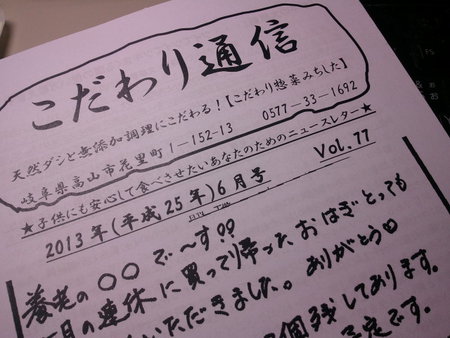 こだわり通信
天然ダシと無添加調理にこだわる!【こだわり惣菜みちした】
岐阜県高山市花里町1-152-13 0577-33-1692
★子供にも安心して食べさせたいあなたのためのニュースレター★
2013年(平成25年)6月号 Vol.77
養老の○○で〜す??
月の連休に買って帰ったおはぎとっても
いただきました。ありがとう♡
個残してあります。
予定です。